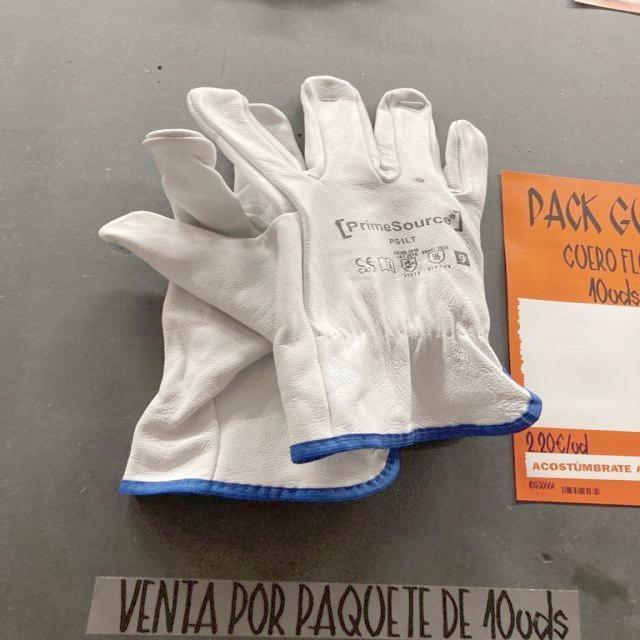 [PrimeSource®]
PS1LT
CE
CAT II
9
PACK GU
CUERO FLO
10uds
2.20€/ud
ACOSTÚMBRATE A
VENTA POR PAQUETE DE 10uds